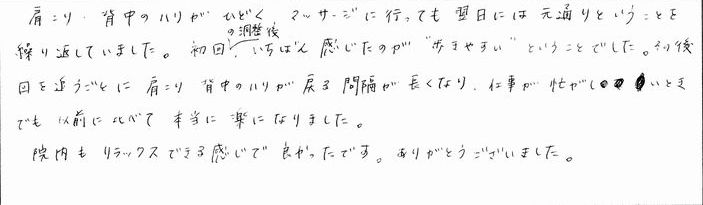 肩こり、背中のハリがひどく マッサージに行っても翌日には元通りということを
繰り返していました。初回の調整後、いちばん感じたのが“歩きやすい”ということでした。その後
回を追うごとに肩こり 背中のハリが戻る間隔が長くなり、仕事が忙がしいとき
でも以前に比べて本当に楽になりました。
院内もリラックスできる感じで良かったです。ありがとうございました。